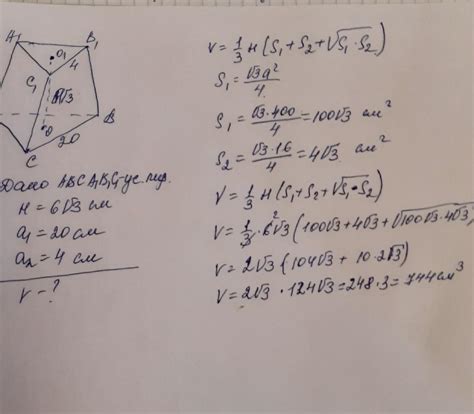 A₁ B₁
O₁
4
C₁ 6√3
O B
20
C
Дано ABCA₁B₁C₁-ус. пир.
H = 6√3 см
a₁ = 20 см
a₂ = 4 см
V - ?
V = 1/3 H (S₁ + S₂ + √(S₁ · S₂))
S₁ = √3a²/4
S₁ = √3·400/4 = 100√3 см²
S₂ = √3·16/4 = 4√3 см²
V = 1/3 H (S₁ + S₂ + √(S₁ · S₂))
V = 1/3 · 6² √3 (100√3 + 4√3 + √(100√3 · 4√3))
V = 2√3 (104√3 + 10·2√3)
V = 2√3 · 124√3 = 248·3 = 744 см³